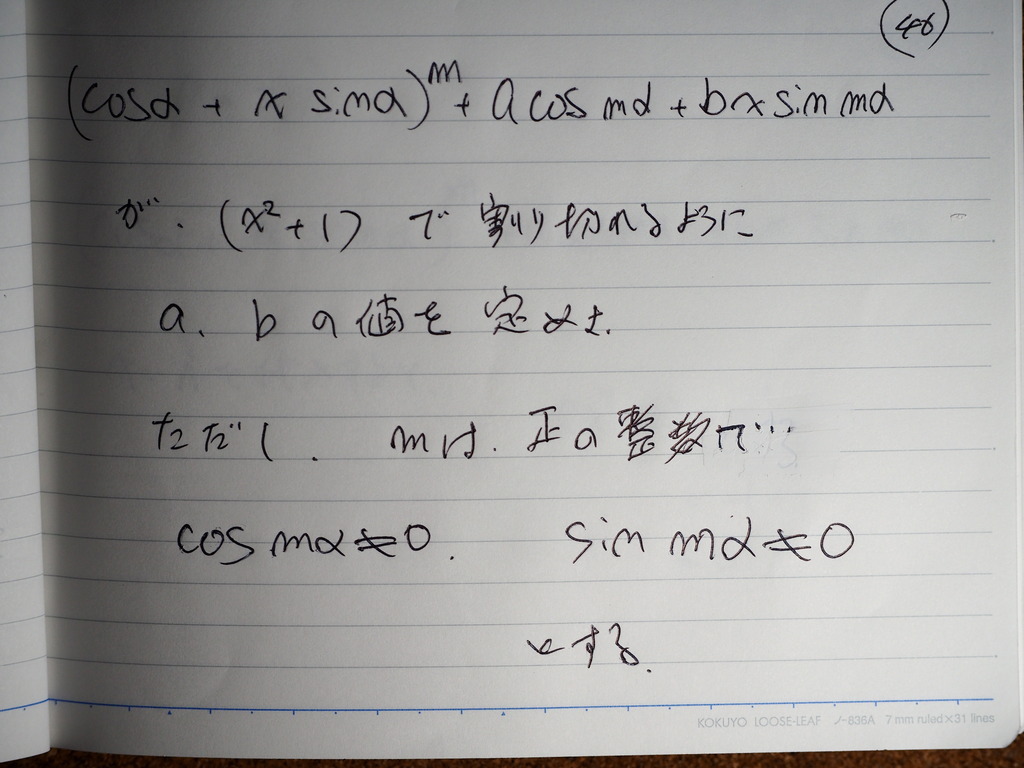 46
(cosα + x sinα)^m + a cos mα + bx sin mα
が、(x²+1) で 割り切れるように
a、b の値を 定めよ.
ただし、mは、正の整数で…
cos mα≠0. sin mα≠0
とする.
KOKUYO LOOSE-LEAF ノ-836A 7 mm ruled×31 lines